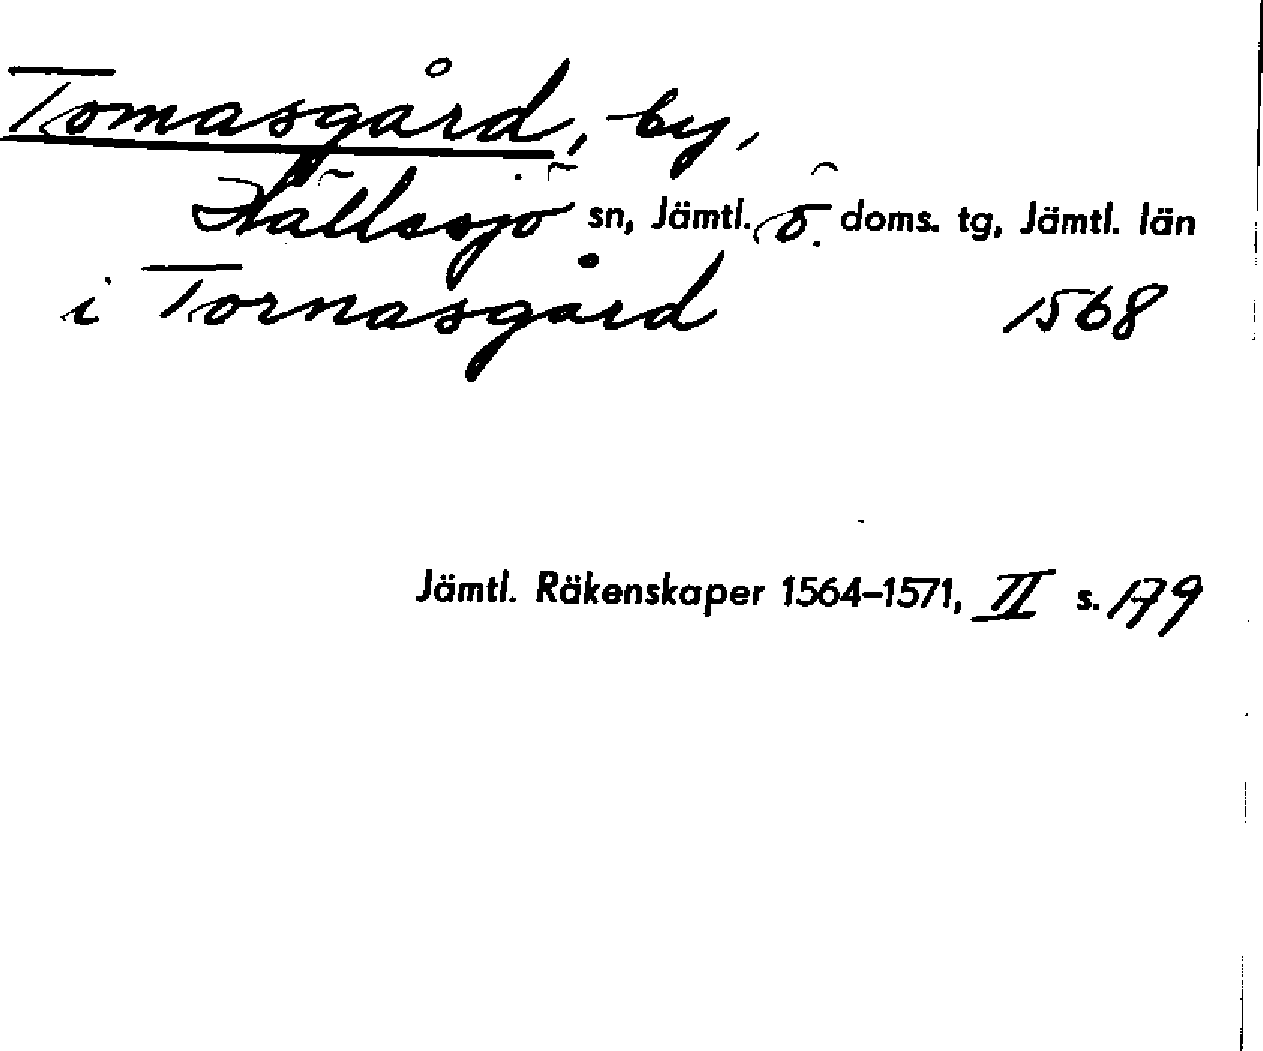 Tomasgård, by,
Hällesjö sn, Jämtl. ö. doms. tg, Jämtl. län
i Tornasgård 1568
Jämtl. Räkenskaper 1564–1571, II s. 179